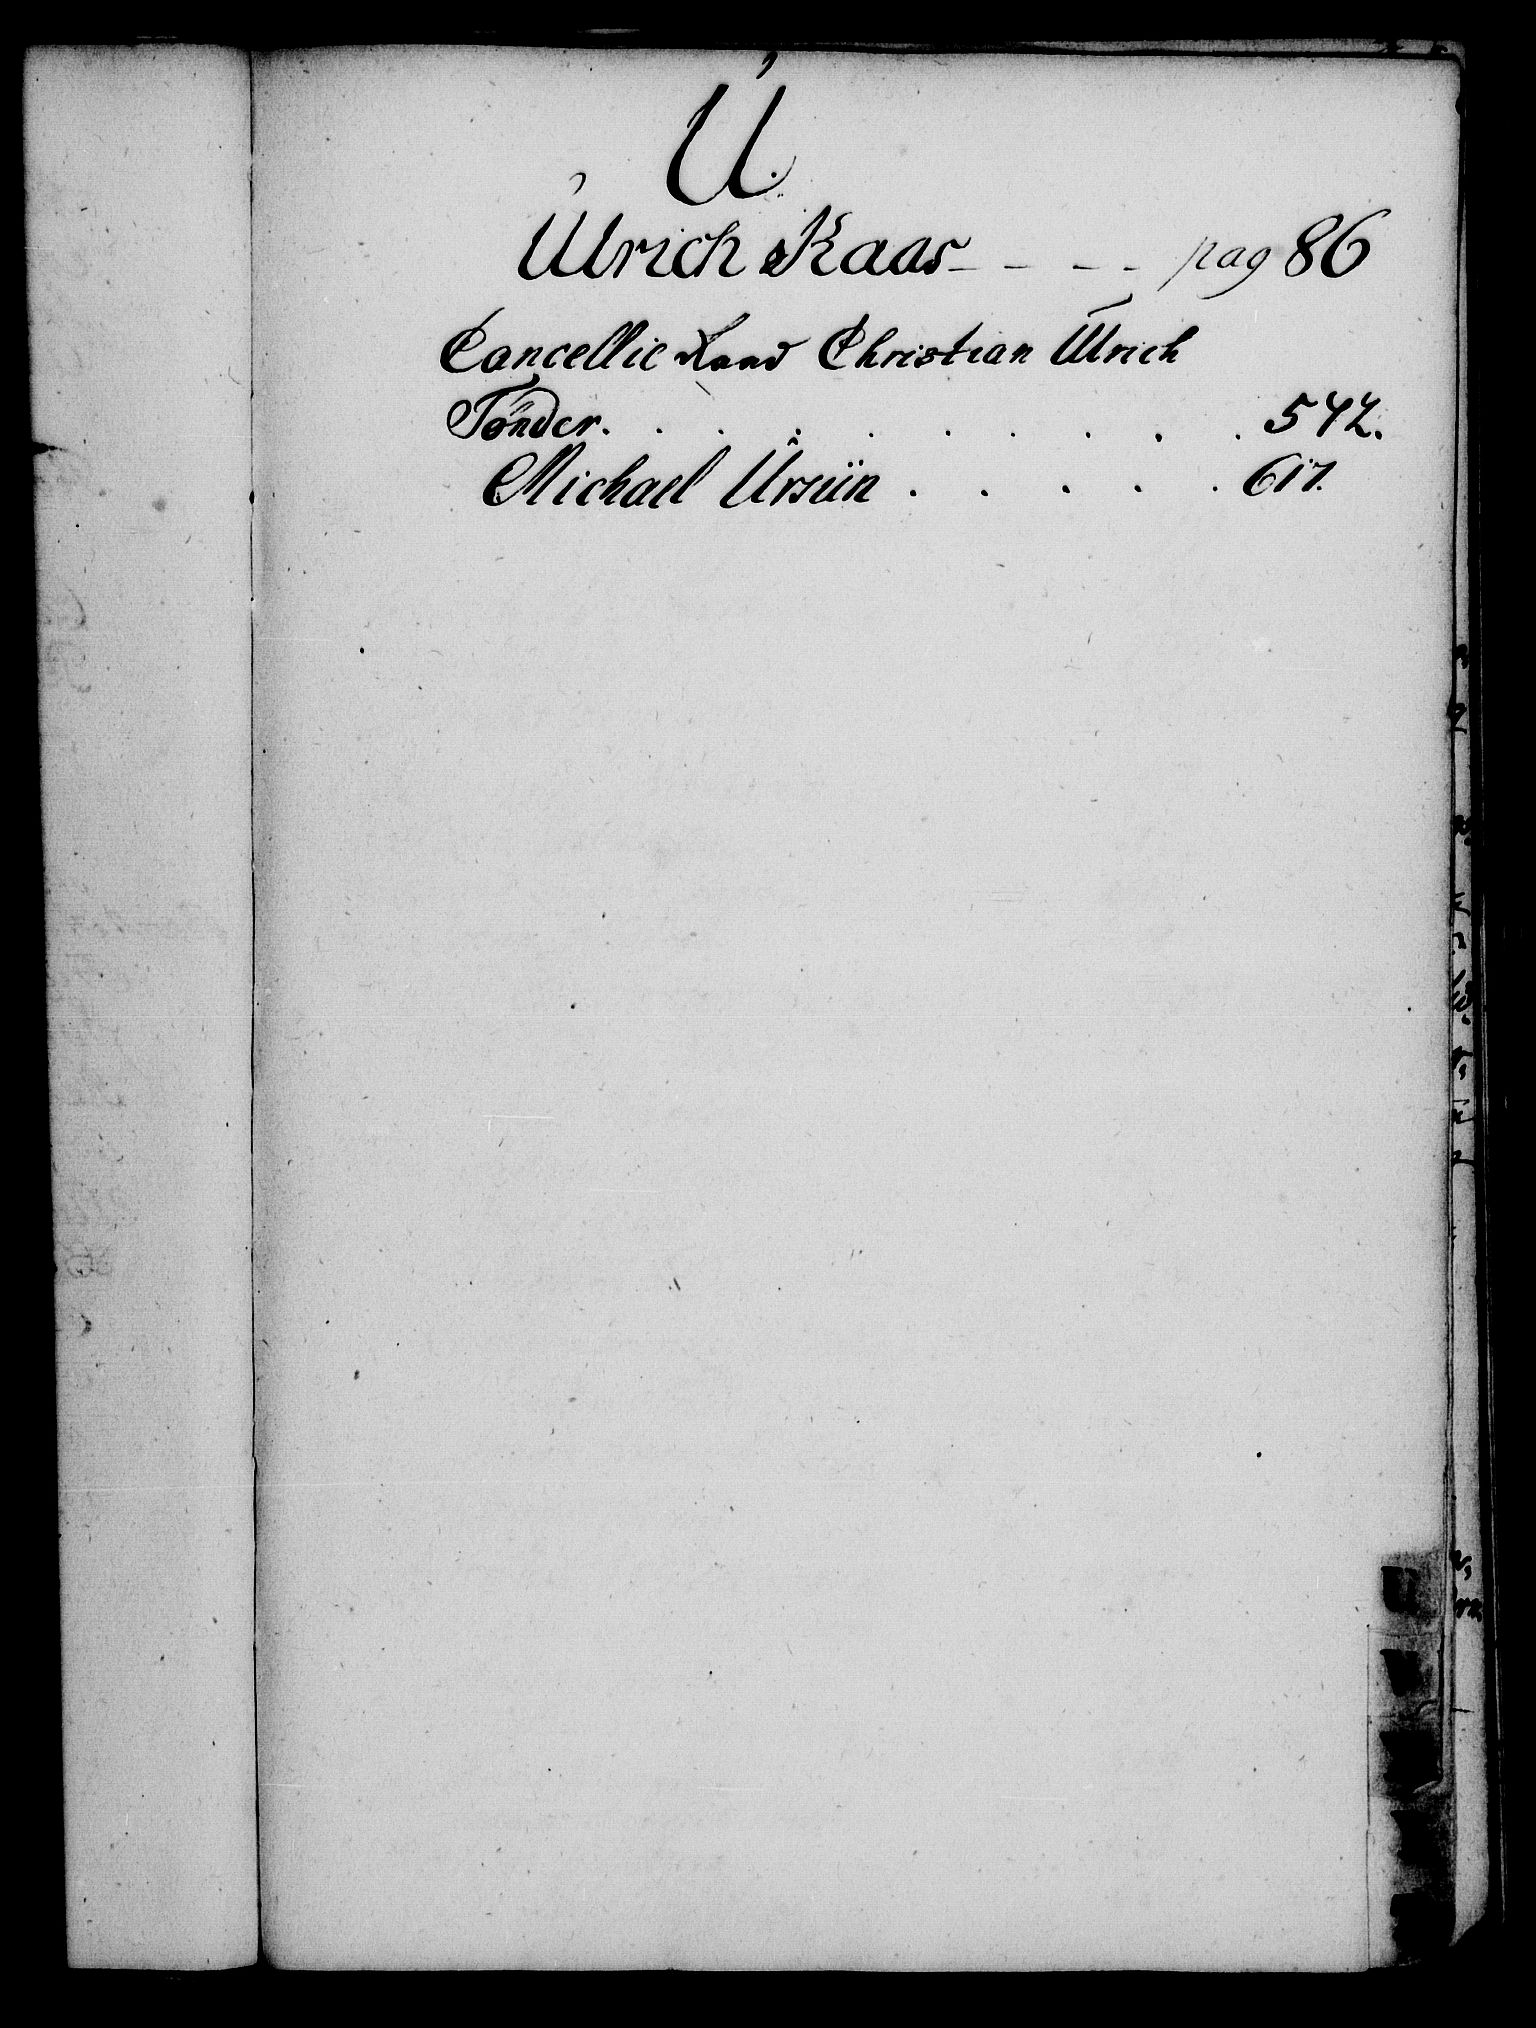 U.
Ulrich Kaas - - - - pag 86
Cancellie Raad Christian Ulrich
Tönder. . . . . . . . . . 542.
Michael Ursün . . . . . 617.
U
V